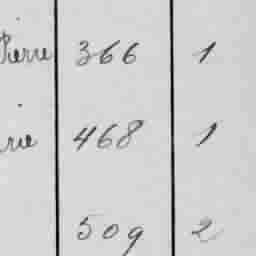 Pierre 366 1
rie 468 1
509 2